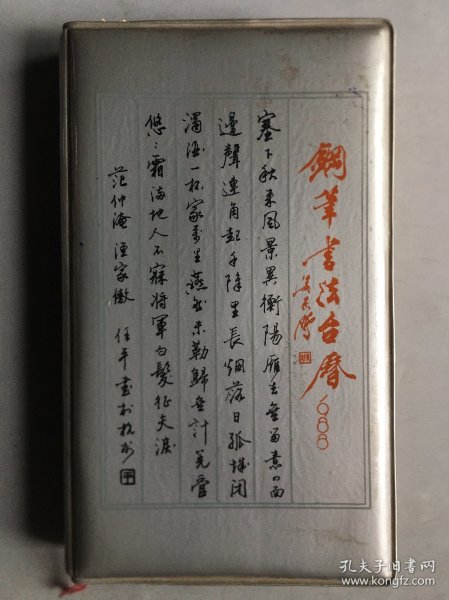 鋼筆書法台曆
1988
姜东舒
塞下秋来風景異衡陽雁去無留意四面
邊聲連角起千障里長烟落日孤城閉
濁酒一杯家万里燕然未勒歸無計羌管
悠々霜满地人不寐将軍白髮征夫淚
范仲淹 漁家傲 任平書於杭州
平
孔夫子旧书网
www.kongfz.com